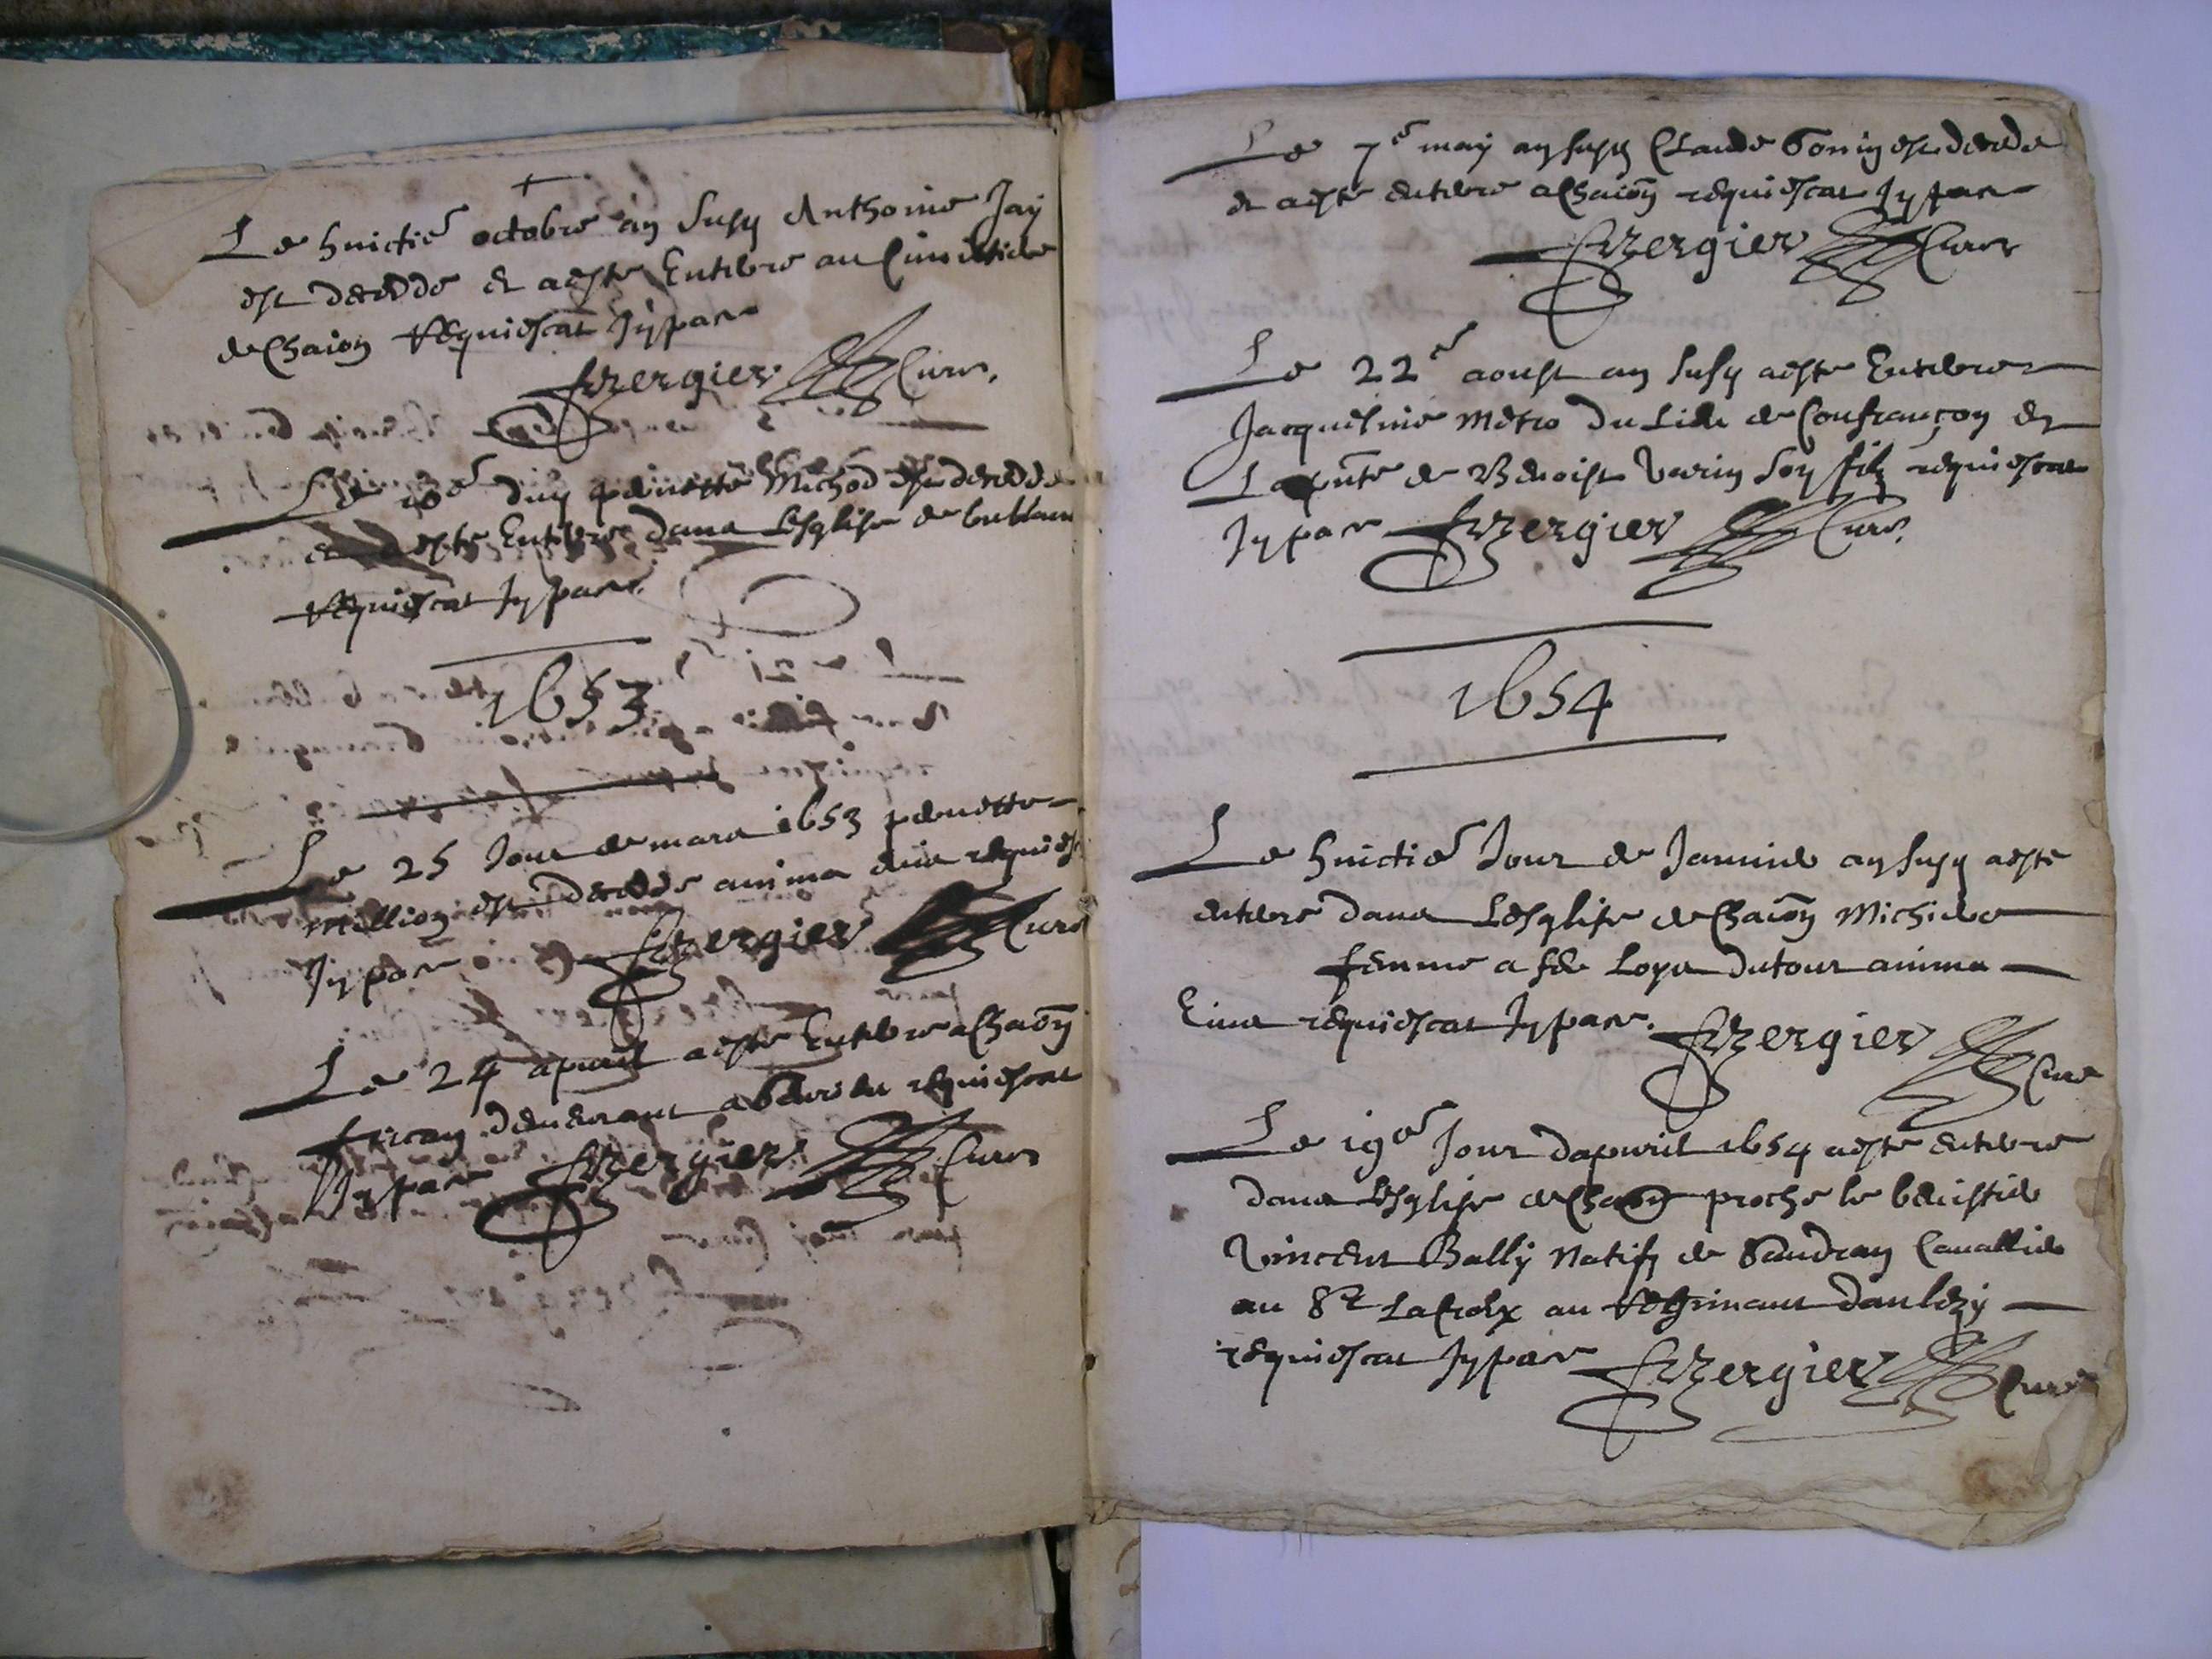 Le huictie octobre an susy Anthoine Jay
est decedde et a este Enterre au Cimistiere
de Chaion Requiescat Jn pace
Bergier Cure.
Le 10e duy pernette Michod est decedde
et a este Enterre dans Lesglise de
Requiescat Jn pace.
1653
Le 25 Jour de mars 1653 pernette
Million est decede anima eius requies
Jn pace Bergier Cure
Le 24 apuril a este Enterre a Chaon
demeurant a requiescat
Jn pace Bergier Cure
Le 7e may an susy Claude Gonin est decede
et a este enterre a Chaion requiescat Jn pace
Bergier Cure
Le 22e aoust an susy a este Enterre
Jacqueline Metro du Lieu de Confrançon et
de Benoist Varin son filz requiescat
Jn pace Bergier Cure.
1654
Le huictie Jour de Januier an susy a este
enterre dans Lesglise de Chaion
femme a feu Loys dutour anima
Eius requiescat Jn pace. Bergier Cure
Le 19e Jour dapuril 1654 a este enterre
dans Lesglise de Chaon proche le benistier
Vincent Bally Natif de Cauallier
au Sr LaCroix au Regimant
requiescat Jn pace Bergier Cure